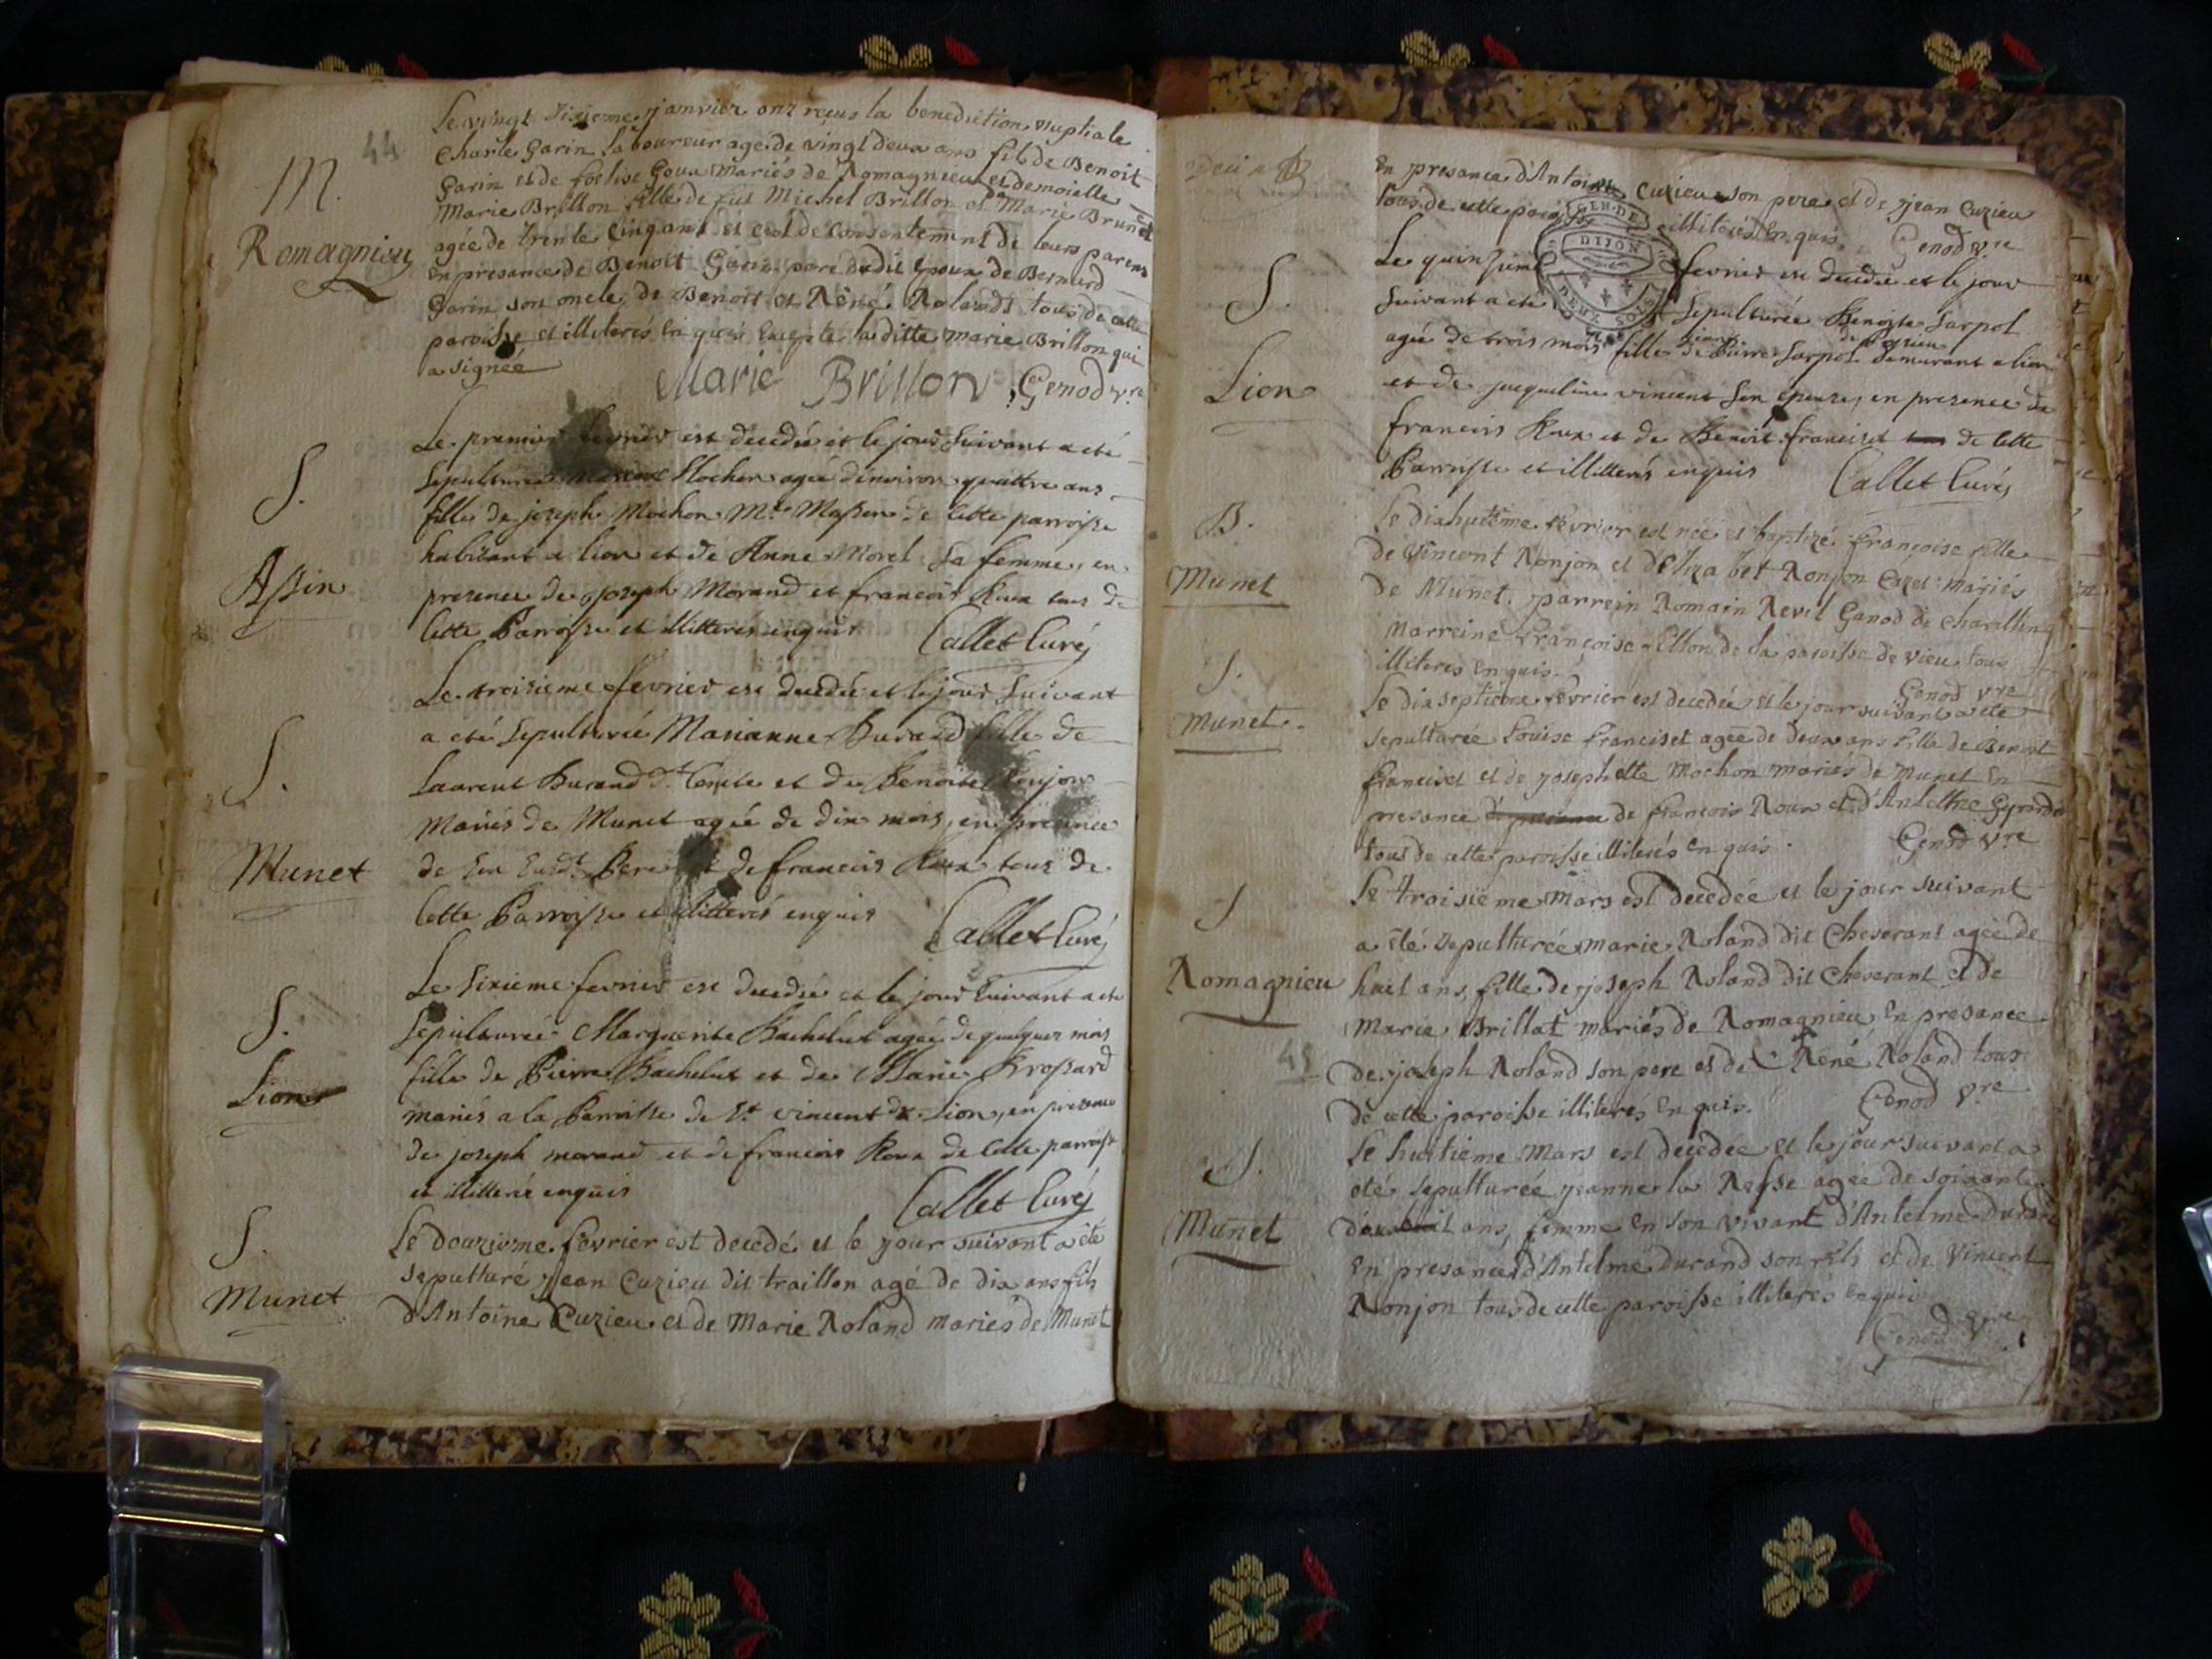 44
M.
Romagnieu
Le vingt sixieme janvier ont reçus la benediction nuptiale
Charle Garin laboureur agé de vingt deux ans fils de Benoit
Garin et de Goux mariés de Romagnieu et demoiselle
Marie Brillon fille de fut Michel Brillon et Marie Brunet
agée de trente cinq ans et cest de consentement de leurs parens
en presance de Benoit Garin pere dudit epoux de Bernard
Garin son oncle, de Benoit et Réné Rolands tous de cette
paroisse et illiterés en quis excepté la ditte marie Brillon qui
a signée
Marie Brillon Genod vre
S.
Assin
Le premier fevrier est decedée et le jour suivant a eté
sepulturée Mochon agée d'environ quattre ans
fille de joseph Mochon Mtre Masson de cette parroisse
habitant a lion et de Anne Morel sa femme, en
presence de joseph Morand et francois Roux tous de
cette Parroisse et illitterés enquis Callet Curé
S.
Munet
Le troisieme fevrier est decedée et le jour suivant
a eté sepulturée Marianne Durand fille de
Laurent Durand dt Comte et de Benoite Ronjon
mariés de Munet agée de dix mois, en presence
de son susdt Pere et de francois Roux tous de
cette Parroisse et illitterés enquis Callet Curé
S.
Lion
Le sixieme fevrier est decedée et le jour suivant a eté
sepulturée Marguerite Bachelut agée de quelques mois
fille de Pierre Bachelut et de Marie Brossard
mariés a la Parroisse de St vincent de Lion, en presence
de joseph morand et de francois Roux de cette parroisse
et illitterés enquis Callet Curé
S.
Munet
Le douzieme fevrier est decedé et le jour suivant a été
sepulturé jean Cuzieu dit traillon agé de dix ans fils
d'Antoine Cuzieu et de Marie Roland mariés de Munet
en presance d'Antoine Cuzieu son pere et de jean Cuzieu
tous de cette paroisse illiterés en quis. Genod vre
GEN. DE
DIJON
DEUX SOLS
S.
Lion
Le quinzieme fevrier est decedée et le jour
suivant a eté sepulturée Benoite Sarpol
agée de trois mois fille de Pierre Sarpol demurant a lion
et de jacqueline vincent son epouse, en presence de
francois Roux et de Benoit franciset de cette
Parroisse et illitterés enquis Callet Curé
B.
Munet
Le dixhuitême fevrier est née et baptizé françoise fille
de Vincent Ronjon et d'Eliza bet Ronjon Cazet mariés
de Munet. parrein Romain Revel Ganod de
marreine françoise Ellon de la paroisse de vieu tous
illiteres en quis. Genod vre
S.
Munet
Le dix septieme fevrier est decedée et le jour suivant a été
sepulturée Louise franciset agée de deux ans fille de Benoit
franciset et de josephette Mochon mariés de Munet en
presance de francois Roux et d'Antelme
tous de cette paroisse illiterés en quis. Genod vre
S
Romagnieu
Le troisieme mars est decedée et le jour suivant
a été sepulturée marie Roland dit Cheverant agée de
huit ans, fille de joseph Roland dit Cheverant et de
Marie Brillat mariés de Romagnieu en presance
45
de joseph Roland son pere et de Réné Roland tous
de cette paroisse illiterés en quis. Genod vre
S.
Munet
Le huitieme Mars est decedée et le jour suivant a
eté sepulturée jeanne la Resse agée de soixante
ans, femme en son vivant d'Antelme Durand
en presance d'Antelme durand son fils et de Vincent
Ronjon tous de cette paroisse illiterés enquis
Genod vre